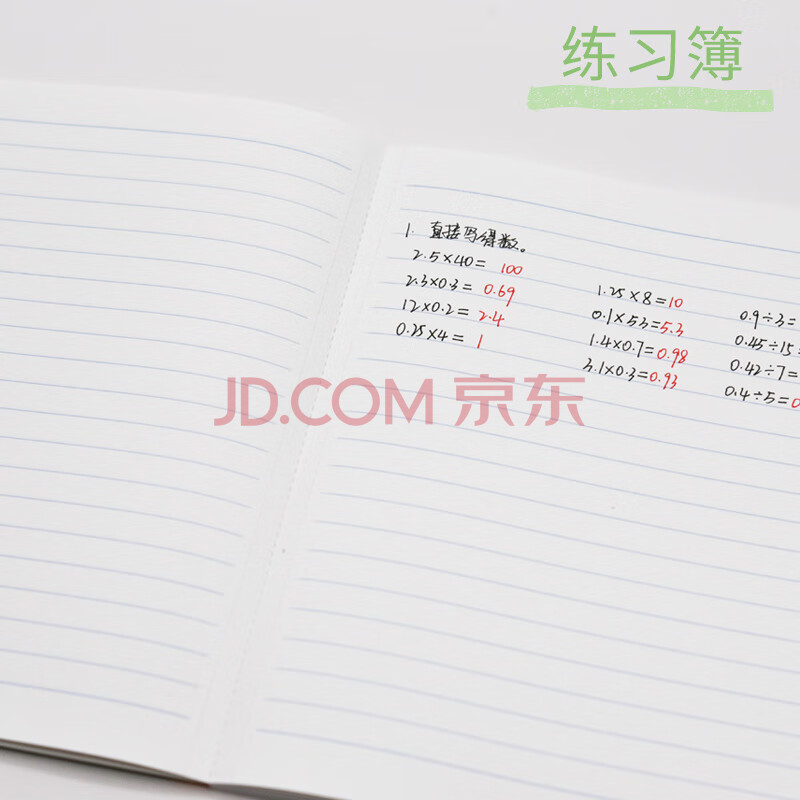 练习簿
1. 直接写得数。
2.5×40=100
2.3×0.3=0.69
12×0.2=2.4
0.25×4=1
1.25×8=10
0.1×53=5.3
1.4×0.7=0.98
3.1×0.3=0.93
0.9÷3=
0.45÷15=
0.42÷7=
0.4÷5=0
JD.COM 京东